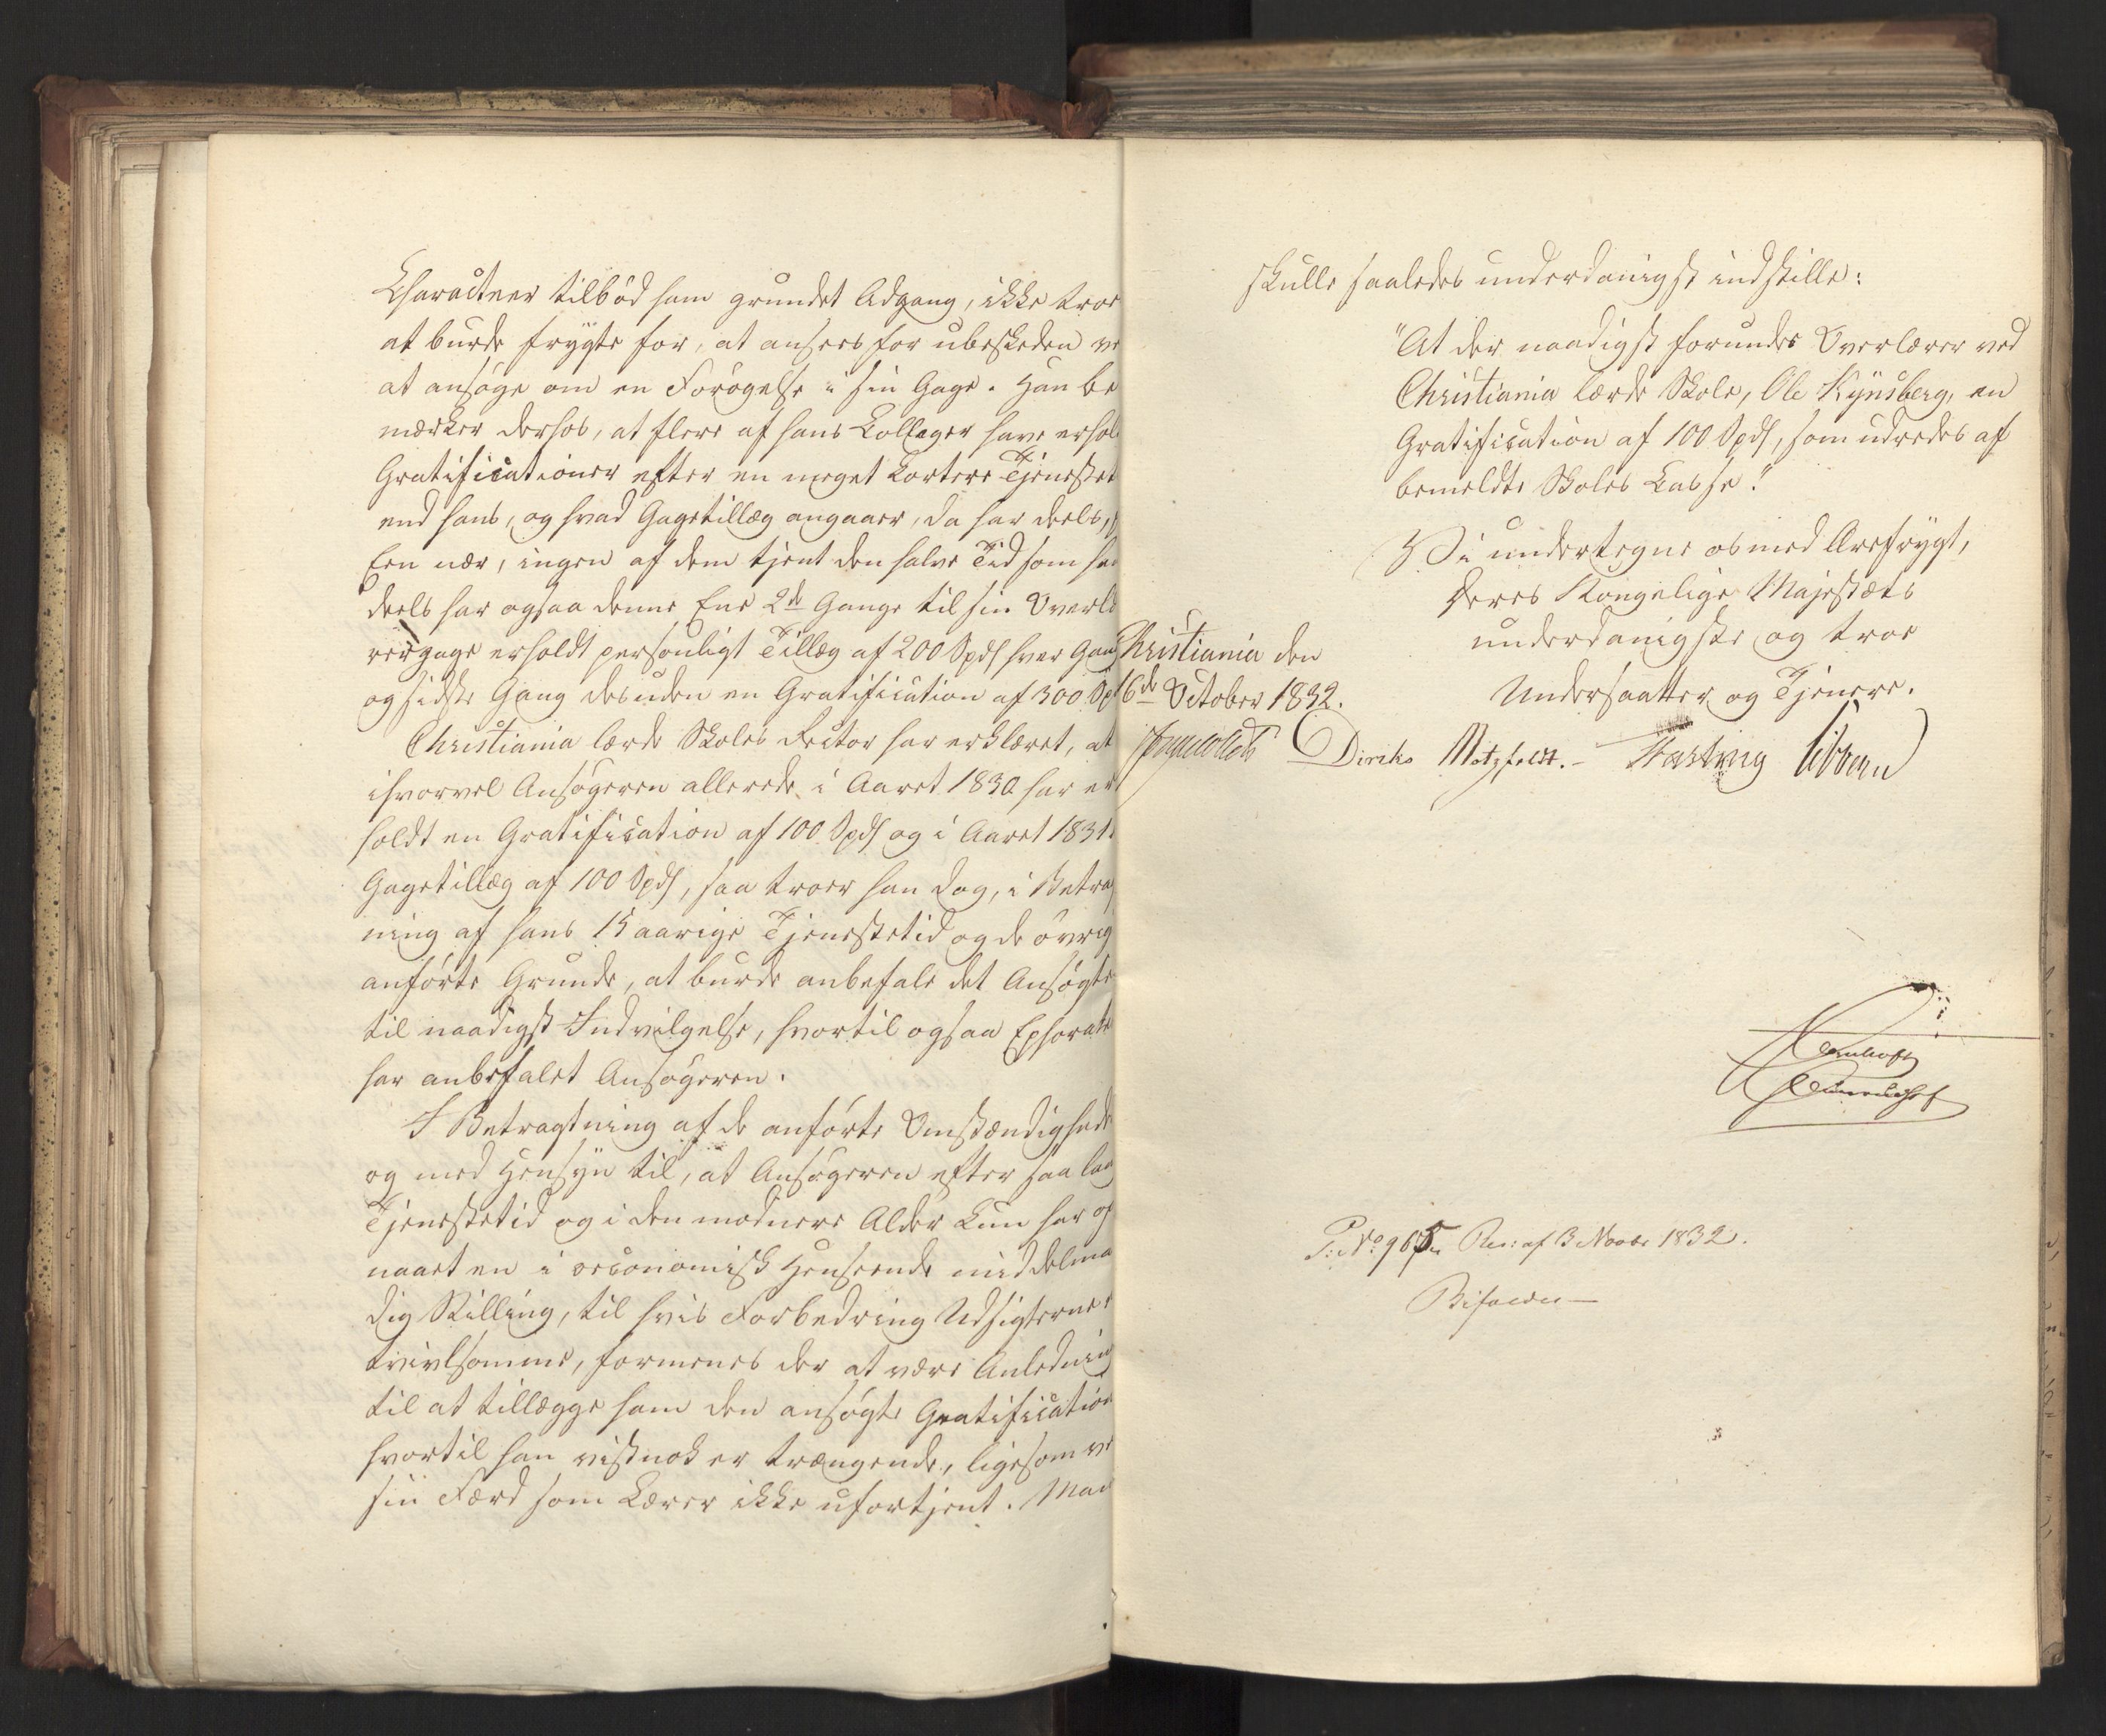 Characteer tilbød ham grundet Adgang, ikke troe
at burde frygte for, at ansees for ubeskeden ve
at ansøge om en Forøgelse i sin Gage. Han be
mærker derhos, at flere af hans Colleger have erhol
Gratificationer efter en meget kortere Tjenestet
end hans, og hvad Gagetillæg angaaer, da har deels,
Een nær, ingen af dem tjent den halve Tid som ha
deels har ogsaa denne Ene 2de Gange til sin Overlæ
rergage erholdt personligt Tillæg af 200 Spdl hver Gang
og sidste Gang desuden en Gratification af 300 Sp
Christiania lærde Skoles Rector har erklæret, at
ihvorvel Ansøgeren allerede i Aaret 1830 har er
holdt en Gratification af 100 Spdl og i Aaret 1831
Gagetillæg af 100 Spdl, saa troer han dog, i Betrag
ning af hans 15 aarige Tjenestetid og de øvrig
anførte Grunde, at burde anbefale det Ansøgte
til naadigst Indvilgelse, hvortil ogsaa Ephorate
har anbefalet Ansøgeren.
I Betragtning af de anførte Omstændighede
og med Hensyn til, at Ansøgeren efter saa lang
Tjenestetid og i den modnere Alder kun har op
naaet en i oeconomisk Henseende middelmaa
dig Stilling, til hvis Forbedring Udsigterne e
tvivlsomme, formenes der at være Anledning
til at tillægge ham den ansøgte Gratification
hvortil han vistnok er trængende, ligesom ve
sin Færd som Lærer ikke ufortjent. Man
skulle saaledes underdanigst indstille:
"At der naadigst forundes Overlærer ved
Christiania lærde Skole, Ole Kynsberg, en
Gratification af 100 Spdl, som udredes af
bemeldte Skoles Casse."
Vi undertegne os med Ærefrygt,
Deres Kongelige Majestæts
underdanigste og troe
Undersaatter og Tjenere.
Christiania den
16de October 1832.
Diriks Motzfeldt. Fasting Vibere
P: No 965 Res: af 3 Novbr 1832.
Bifaldes